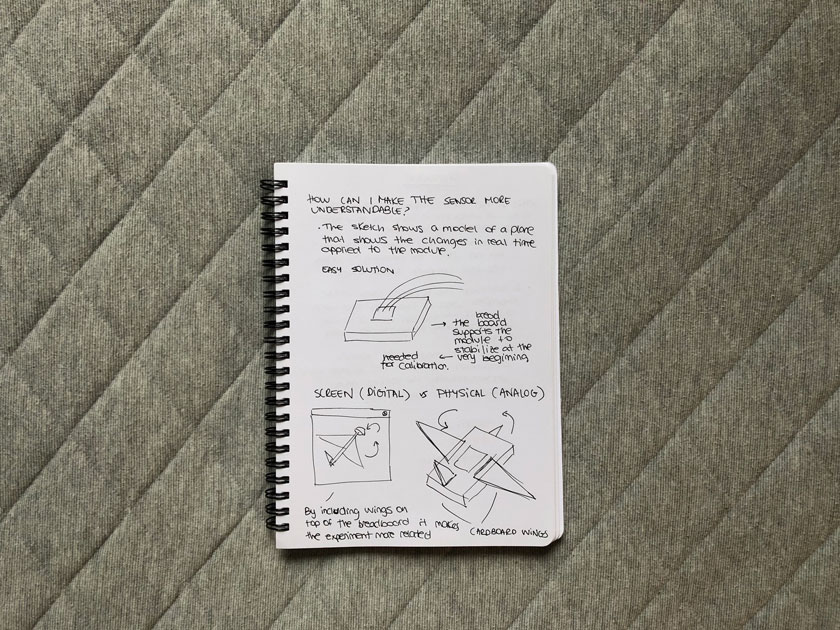 HOW CAN I MAKE THE SENSOR MORE
UNDERSTANDABLE?
. The sketch shows a model of a plane
that shows the changes in real time
applied to the module.
EASY SOLUTION
→ the bread
board
supports the
module to
stabilize at the
← very begining
needed
for calibration.
SCREEN (DIGITAL) vs PHYSICAL (ANALOG)
By including wings on
top of the breadboard it makes
the experiment more related
CARDBOARD WINGS